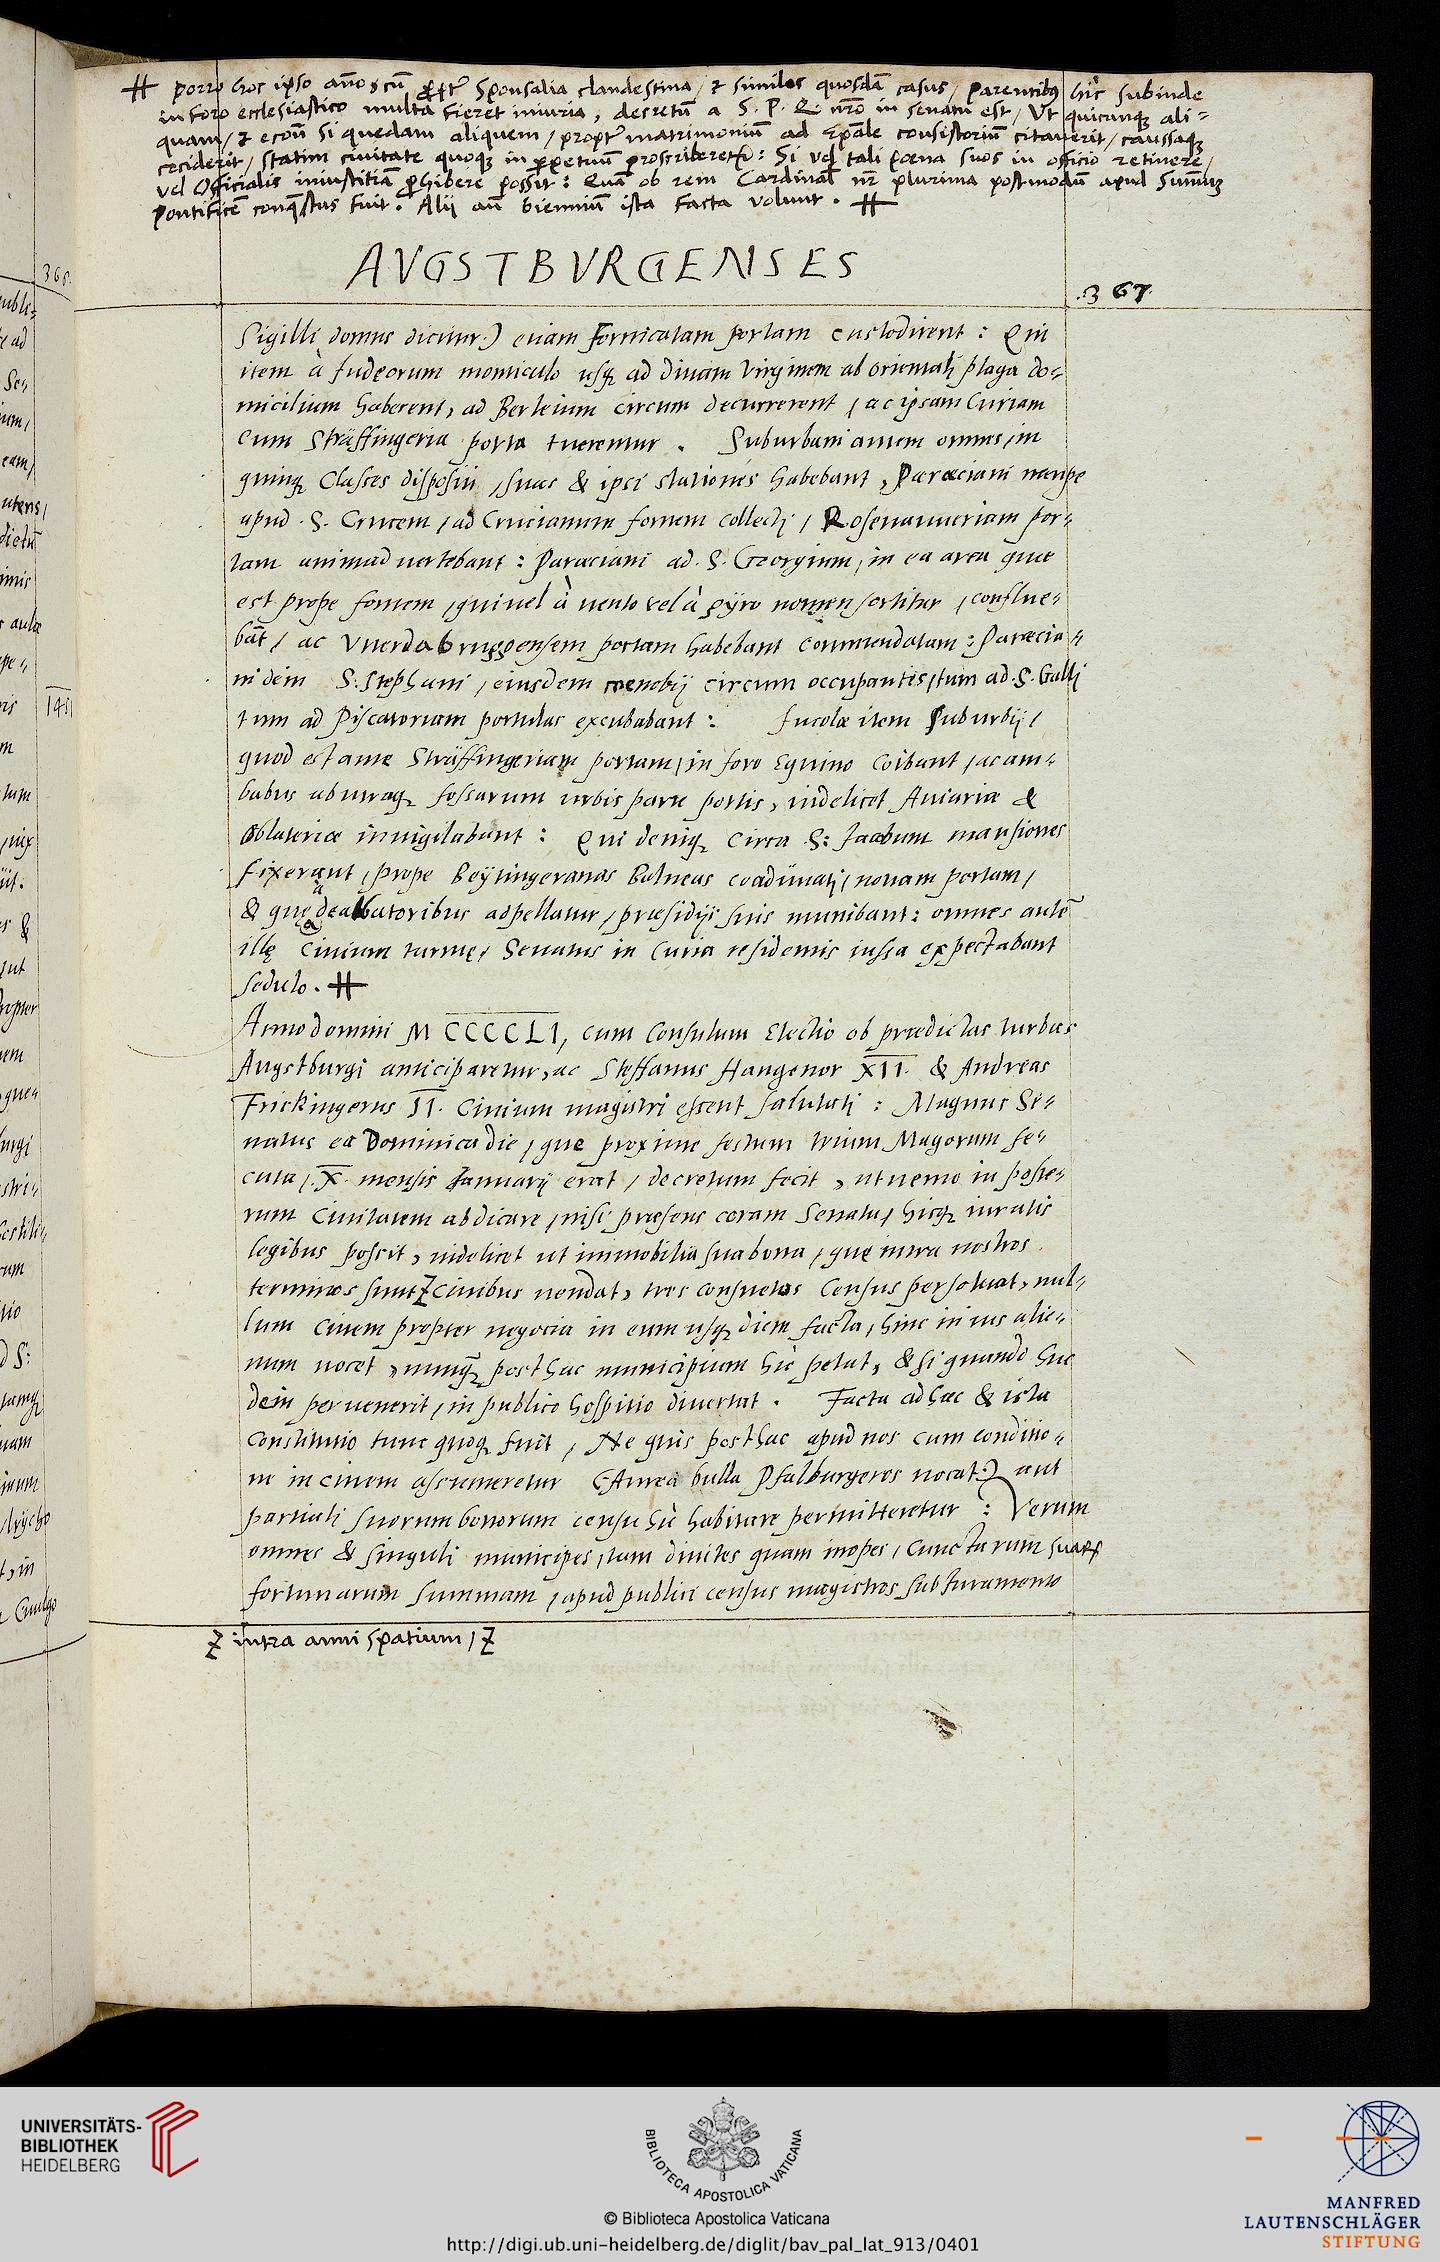 # Porro hoc ipso año, cũ ꝓpt̃ Sponsalia clandestina / & similes quosdã casus / Parentibꝰ hîc subinde
in foro ecclesiastico multa fieret iniuria, decretũ a S. P. Q. nr̃o in senatu est / Ut quicunqꝫ ali-
quam / & econũ si quedam aliquem / propt̃ matrimoniũ ad Ep̃ale consistoriũ citauerit / caussaqꝫ
ceciderit / statim ciuitate quoqꝫ in ꝑpetuũ ꝓscriberet̃: Si vel tali poena suos in officio retinere /
vel Officialis iniustitiã ꝓhibere possit: Quã ob rem Cardinal nr̃ plurima postmodũ apud Sum̃ũ
Pontificẽ conq̃stus fuit. Alij aũ bienniũ ista facta volunt. #
AVGSTBVRGENSES
.367.
Sigilli domus dicitur.) etiam Fornicatam portam custodirent: Qui
item à Judeorum monticulo usqꝫ ad diuam Virginem ab orientali plaga do-
micilium haberent, ad Berleium circum decurrerent / ac ipsam Curiam
cum Sträffingeria porta tuerentur. Suburbani autem omnes, in
quinqꝫ Classes dispositi, suas & ipsi stationes habebant, Paræciani nempe
apud .S. Crucem / ad Crucianum fontem collecti / Rosenaueriam por-
tam animaduertebant: Paræciani ad .S. Georgium, in ea area que
est prope fontem, qui uel à uento vel à pÿro nomen sortitur, conflue-
bãt / ac Vuerdabruggensem portam habebant commendatam: Paræcia-
ni dein S. Stephani, eiusdem coenobij circum occupantis, tum ad .S. Galli
tum ad Piscatoriam portulas excubabant: Incolæ item Suburbij /
quod est ante Sträffingeriam portam, in foro Equino coibant, ac am-
babus ab utraqꝫ fossarum urbis parte portis, uidelicet Auiaria &
Oblateriæ inuigilabant: Qui deniqꝫ circa .S: Jacobum mansiones
fixerant, prope Beÿtingeranas Balneas coadunati, nouam portam,
& que a dealbatoribus adpellatur, præsidÿs suis munibant: omnes autẽ
illę Ciuium turmę, Senatus in Curia residentis iussa expectabant
sedulo. #
Anno domini M CCCCLI, cum Consulum Electio ob prædictas turbas
Augstburgi anticiparetur, ac Steffanus Hangenor XII. & Andreas
Frickingerus II. Ciuium magistri essent salutati: Magnus Se-
natus ea Dominica die, que proxime festum trium Magorum se-
cuta, .X. mensis Januarij erat, decretum fecit, ut nemo in poste-
rum Ciuitatem abdicare, nisi præsens coram Senatu, hisqꝫ iuratis
legibus possit, uidelicet ut immobilia sua bona, quę intra nostros
terminos sunt Z ciuibus uendat, tres consuetos Census persoluat, nul-
lum Ciuem propter negocia in eum usqꝫ diem facta, hinc in ius alie-
num uocet, nunqꝫ̃ posthac municipium hîc petat, & si quando huc
dein peruenerit, in publico hospitio diuertat. Facta adhæc & ista
Constitutio tunc quoqꝫ fuit, Ne quis posthac apud nos cum conditio-
ne in ciuem assumeretur (Aurea bulla Pfalburgeros uocat:) aut
partiali suorum bonorum censu hîc habitare permitteretur: Verum
omnes & singuli municipes, tam diuites quam inopes, Cunctarum suarꝝ
fortunarum summam, apud publici census magistros sub Juramento
Z intra anni spatium, Z
UNIVERSITÄTS-
BIBLIOTHEK
HEIDELBERG
BIBLIOTECA APOSTOLICA VATICANA
© Biblioteca Apostolica Vaticana
http://digi.ub.uni-heidelberg.de/diglit/bav_pal_lat_913/0401
MANFRED
LAUTENSCHLÄGER
STIFTUNG